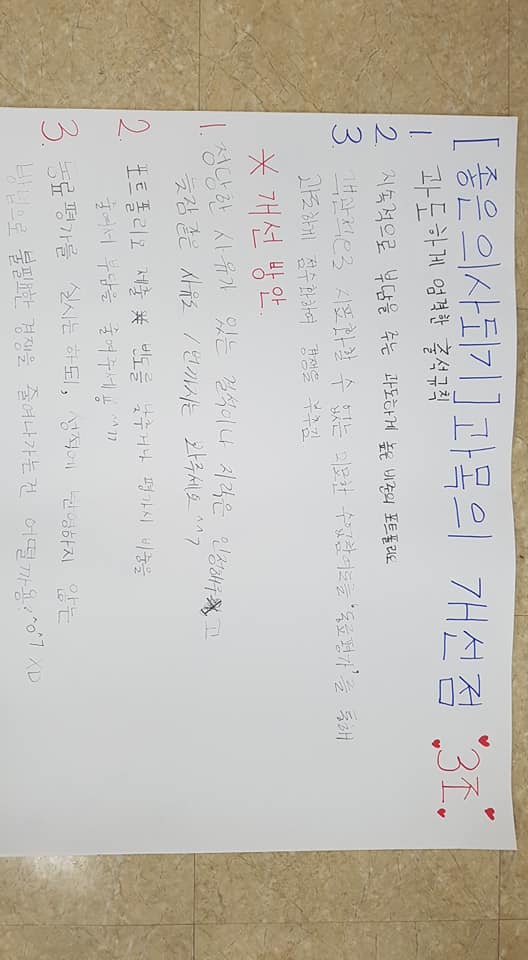 [좋은 의사되기] 과목의 개선점 3조.
1. 과도하게 엄격한 출석규칙
2. 지속적으로 부담을 주는 과도하게 높은 비중의 포트폴리오
3. 객관적으로 지표화할 수 없는 미묘한 수업참여도를 '동료평가'를 통해
과도하게 점수화하여 경쟁을 부추김
* 개선 방안.
1. 정당한 사유가 있는 결석이나 지각은 인정해주고
늦잠같은 사유도 1번까지는 봐주세요 ^^7
2. 포트폴리오 제출 빈도를 낮추거나 평가시 비중을
줄여서 부담을 줄여주세요 ^^7
3. 동료 평가를 실시는 하되, 성적에 반영하지 않는
방법으로 불필요한 경쟁을 줄여나가는건 어떨까요? ^o^7 XD